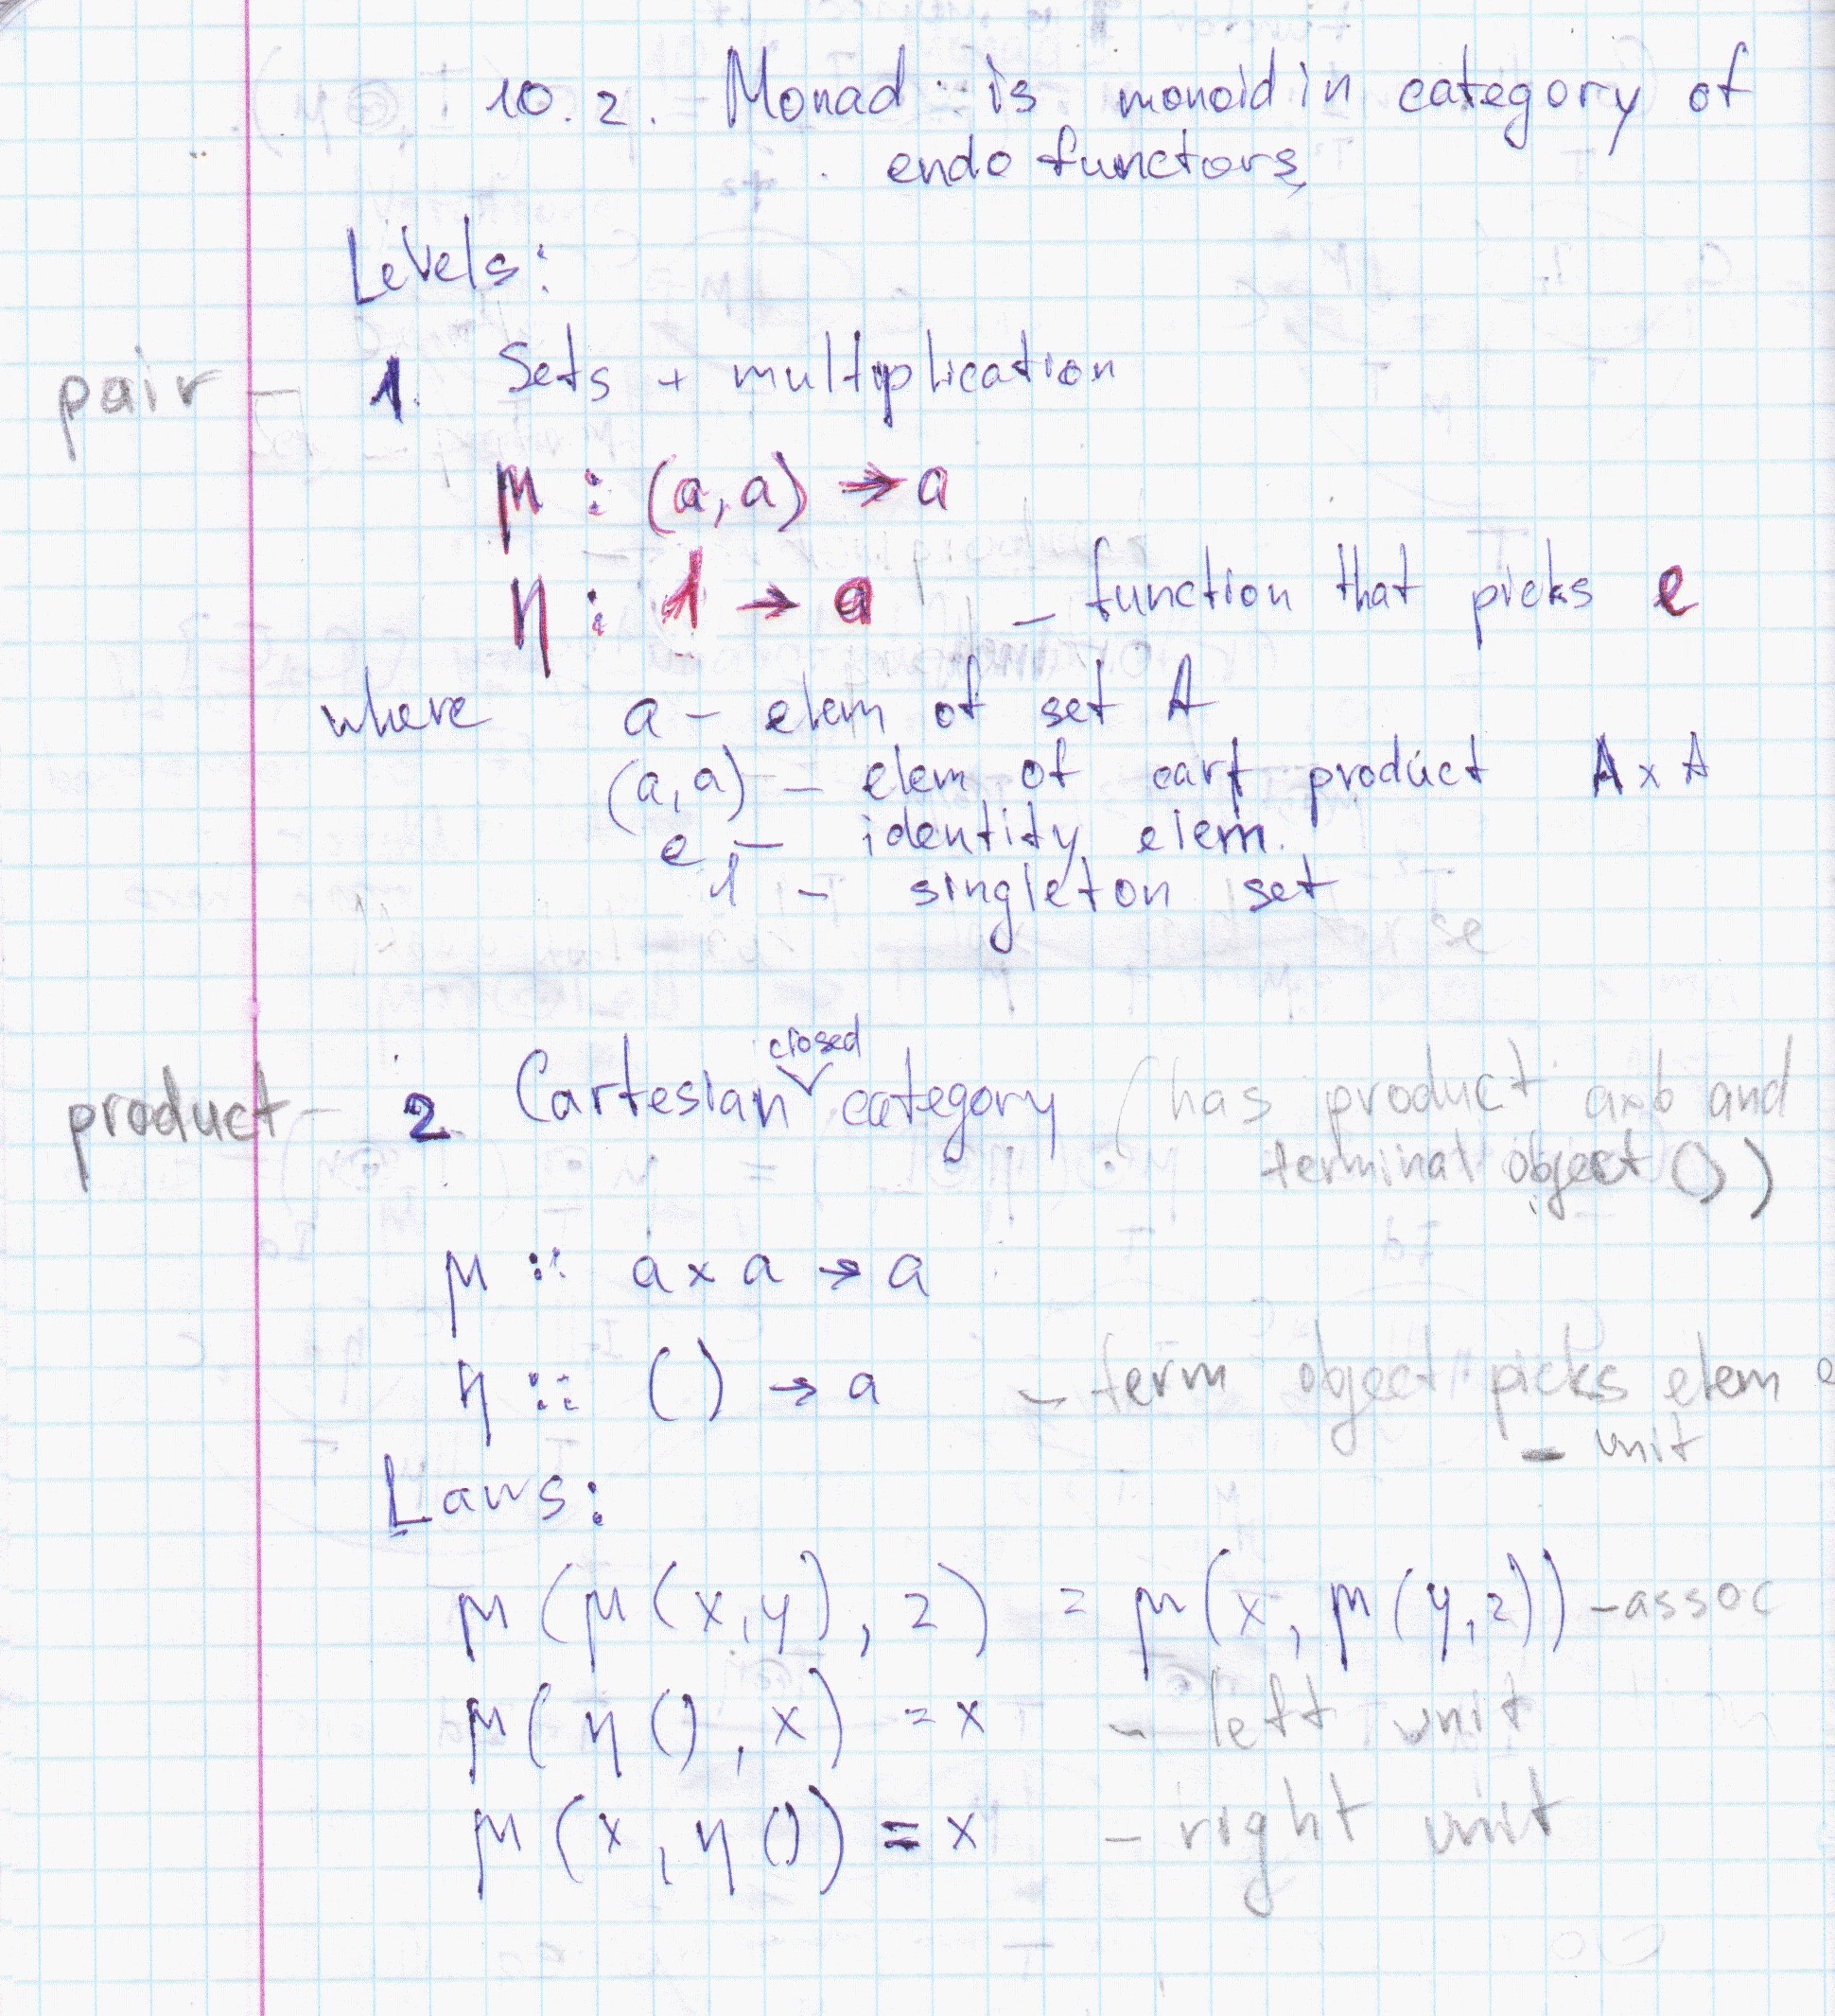 10.2. Monad : is monoid in category of
endo functors
Levels:
pair - 1. Sets + multiplication
μ : (a,a) → a
η : 1 → a - function that picks e
where a - elem of set A
(a,a) - elem of cart product A x A
e - identity elem.
1 - singleton set
closed
product - 2 Cartesian category (has product axb and
terminal object ())
μ :: a x a → a
η :: () → a - term object picks elem e
- unit
Laws:
μ(μ(x,y), z) = μ(x, μ(y,z)) - assoc
μ(η(), x) = x - left unit
μ(x, η()) = x - right unit